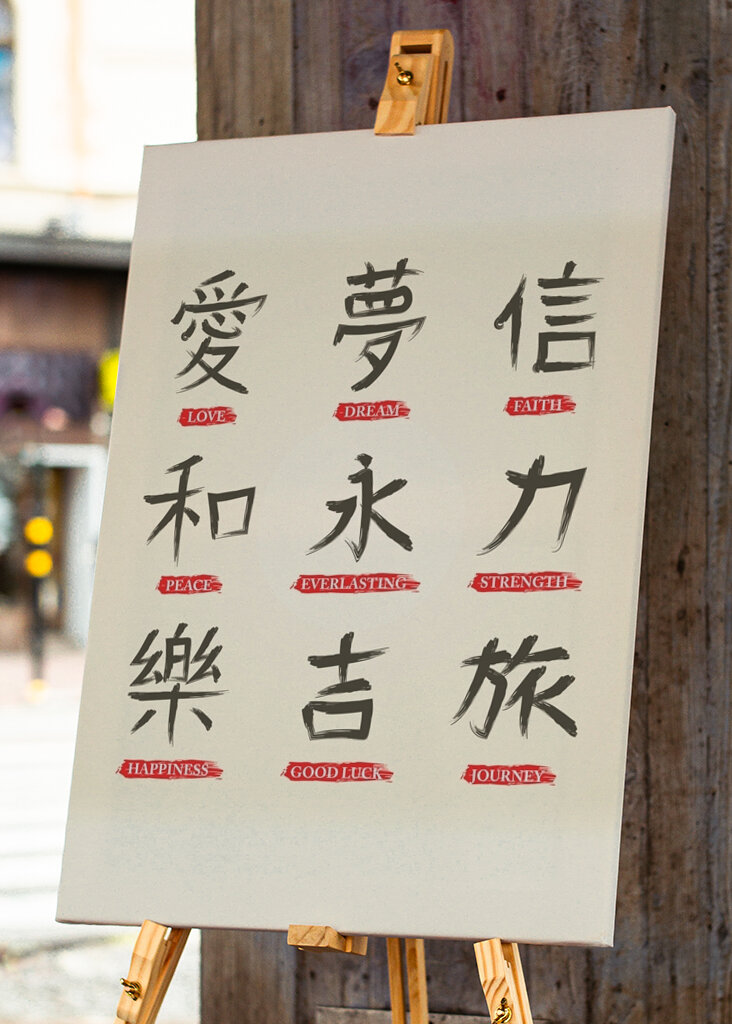 愛 夢 信
LOVE DREAM FAITH
和 永 力
PEACE EVERLASTING STRENGTH
樂 吉 旅
HAPPINESS GOOD LUCK JOURNEY